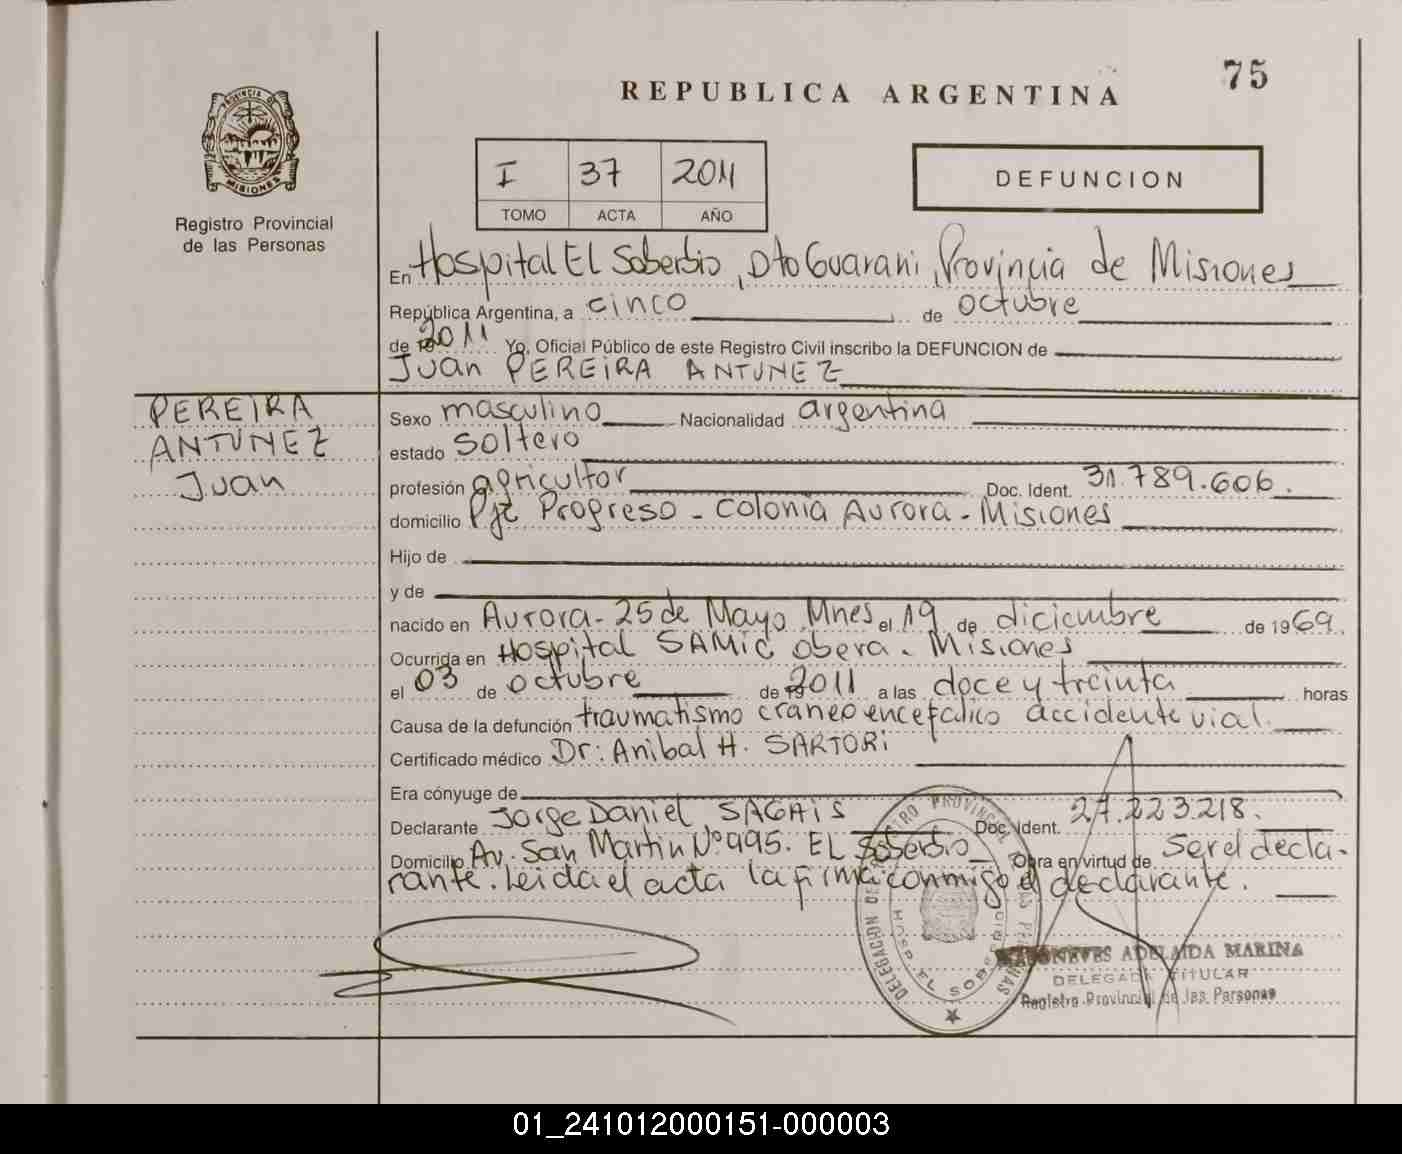 75
REPUBLICA ARGENTINA
PROVINCIA DE
MISIONES
Registro Provincial
de las Personas
I 37 2011
TOMO ACTA AÑO
DEFUNCION
En Hospital EL Soberbio, Dto Guarani, Provincia de Misiones
República Argentina, a cinco de octubre
de 2011 Yo, Oficial Público de este Registro Civil inscribo la DEFUNCION de
Juan PEREIRA ANTUNEZ
PEREIRA
ANTUNEZ
Juan
Sexo masculino Nacionalidad argentina
estado soltero
profesión agricultor Doc. Ident. 31.789.606.
domicilio Pje Progreso - Colonia Aurora - Misiones
Hijo de
y de
nacido en Aurora - 25 de Mayo, Mnes el 19 de diciembre de 1969.
Ocurrida en Hospital SAMIC Obera. Misiones
el 03 de octubre de 2011 a las doce y treinta horas
Causa de la defunción traumatismo craneo encefalico accidente vial.
Certificado médico Dr: Anibal H. SARTORI
Era cónyuge de
Declarante Jorge Daniel SAGAIS Doc. Ident. 27.223.218.
Domicilio Av. San Martin Nº 995. EL Soberbio Obra en virtud de ser el decla-
rante. Leida el acta la firma conmigo el declarante.
DELEGACION DEL REGISTRO PROVINCIAL DE LAS PERSONAS
HOSP. EL SOBERBIO
NEVES ADELAIDA MARINA
DELEGADA TITULAR
Registro Provincial de las Personas
01_241012000151-000003